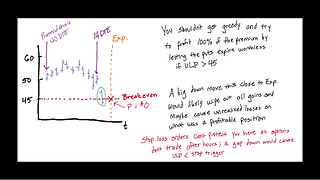 You shouldn't get greedy and try
to profit 100% of the premium by
letting the puts expire worthless
if ULP > 45
A big down move this close to Exp.
would likely wipe out all gains and
maybe cause unrealized losses on
what was a profitable position
Stop loss orders can't protect you here as options
don't trade after hours; a gap down would cause
ULP < stop trigger
60
50
45
40 DTE
14 DTE
Exp.
Breakeven
P = $0
t